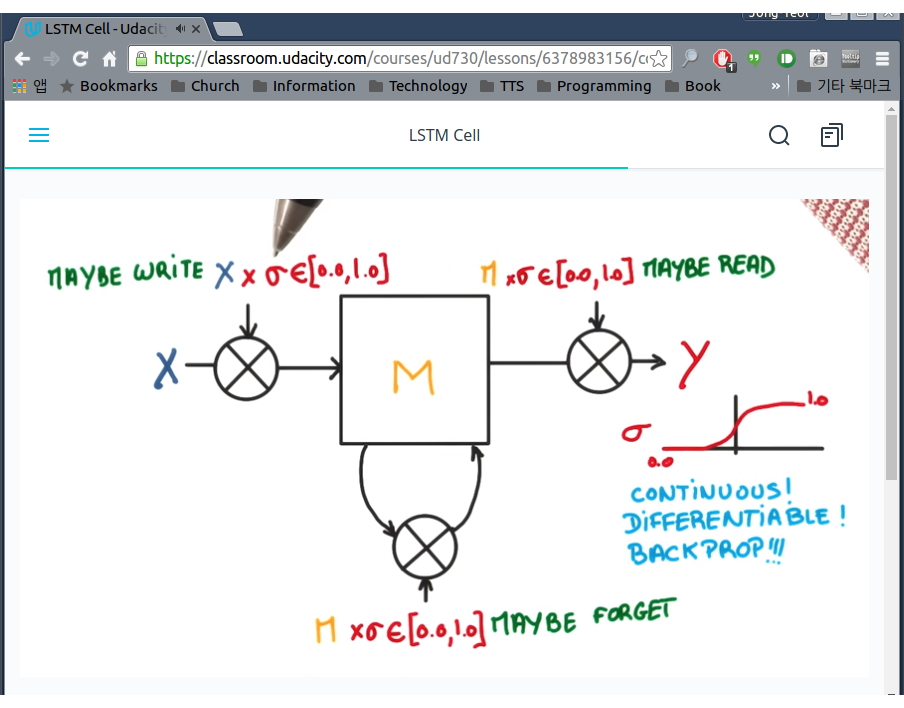 LSTM Cell - Udacit
https://classroom.udacity.com/courses/ud730/lessons/6378983156/c
앱 Bookmarks Church Information Technology TTS Programming Book » 기타 북마크
LSTM Cell
MAYBE WRITE X x σ∈[0.0,1.0]
M xσ∈[0.0,1.0] MAYBE READ
X
M
Y
σ
1.0
0.0
CONTINUOUS!
DIFFERENTIABLE!
BACKPROP!!!
M xσ∈[0.0,1.0] MAYBE FORGET